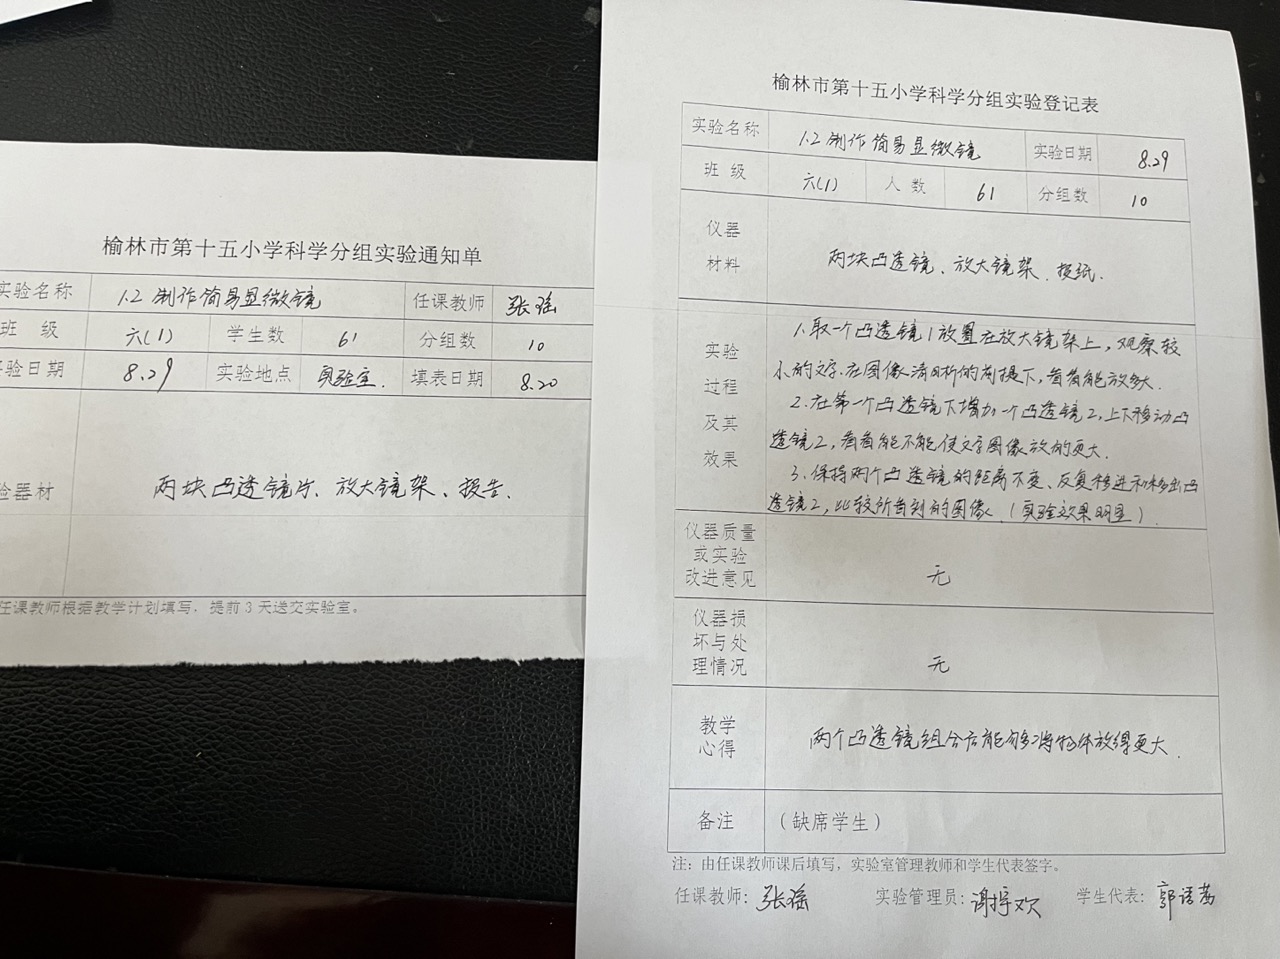 榆林市第十五小学科学分组实验通知单
实验名称 1.2 制作简易显微镜 任课教师 张瑶
班 级 六(1) 学生数 61 分组数 10
实验日期 8.29 实验地点 实验室. 填表日期 8.20
验器材 两块凸透镜片、放大镜架、报告.
任课教师根据教学计划填写，提前3天送交实验室。
榆林市第十五小学科学分组实验登记表
实验名称 1.2 制作简易显微镜 实验日期 8.29
班 级 六(1) 人 数 61 分组数 10
仪器
材料
两块凸透镜、放大镜架、报纸.
实验
过程
及其
效果
1.取一个凸透镜1放置在放大镜架上，观察较
小的文字.在图像清晰的前提下，看看能放多大.
2.在第一个凸透镜下增加一个凸透镜2,上下移动凸
透镜2，看看能不能使文字图像放的更大.
3.保持两个凸透镜的距离不变、反复移进和移出凸
透镜2，比较所看到的图像.（实验效果明显）.
仪器质量
或实验
改进意见
无
仪器损
坏与处
理情况
无
教学
心得
两个凸透镜组合后能够将物体放得更大.
备注 （缺席学生）
注：由任课教师课后填写，实验室管理教师和学生代表签字。
任课教师：张瑶 实验管理员：谢 欢 学生代表：郭语